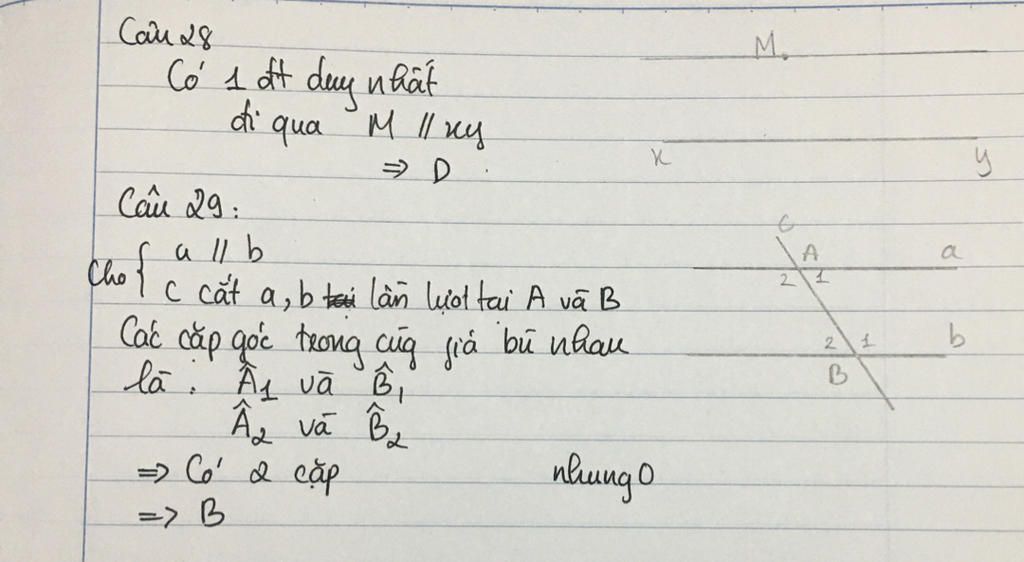 Câu 28
Có 1 đt duy nhất
đi qua M // xy
=> D
M
x y
Câu 29:
Cho { a // b
c cắt a, b lần lượt tại A và B
Các cặp góc trong cùg fiá bù nhau
là : Â1 và B̂1
Â2 và B̂2
=> Có 2 cặp
nhung0
=> B
C
A a
2 1
2 1 b
B